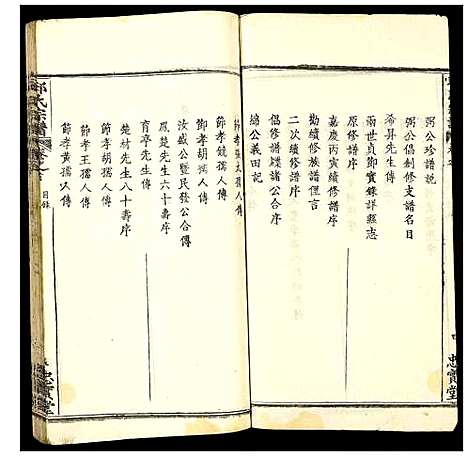 弼公珍譜說
弼公倡創修支譜名目
希昇先生傳
兩世貞節實錄詳縣志
原修譜序
嘉慶丙寅續修譜序
勸續修族譜俚言
二次續修譜序
總修譜諸公合序
總公義田記
節孝張太孺人傳
節孝競孺人傳
節孝胡孺人傳
汝盛公暨民發公合傳
鳳楚先生六十壽序
育亭先生傳
楚材先生八十壽序
節孝胡孺人傳
節孝王孺人傳
節孝黃孺人傳
氏宗譜
目錄
忠實堂
忠實堂